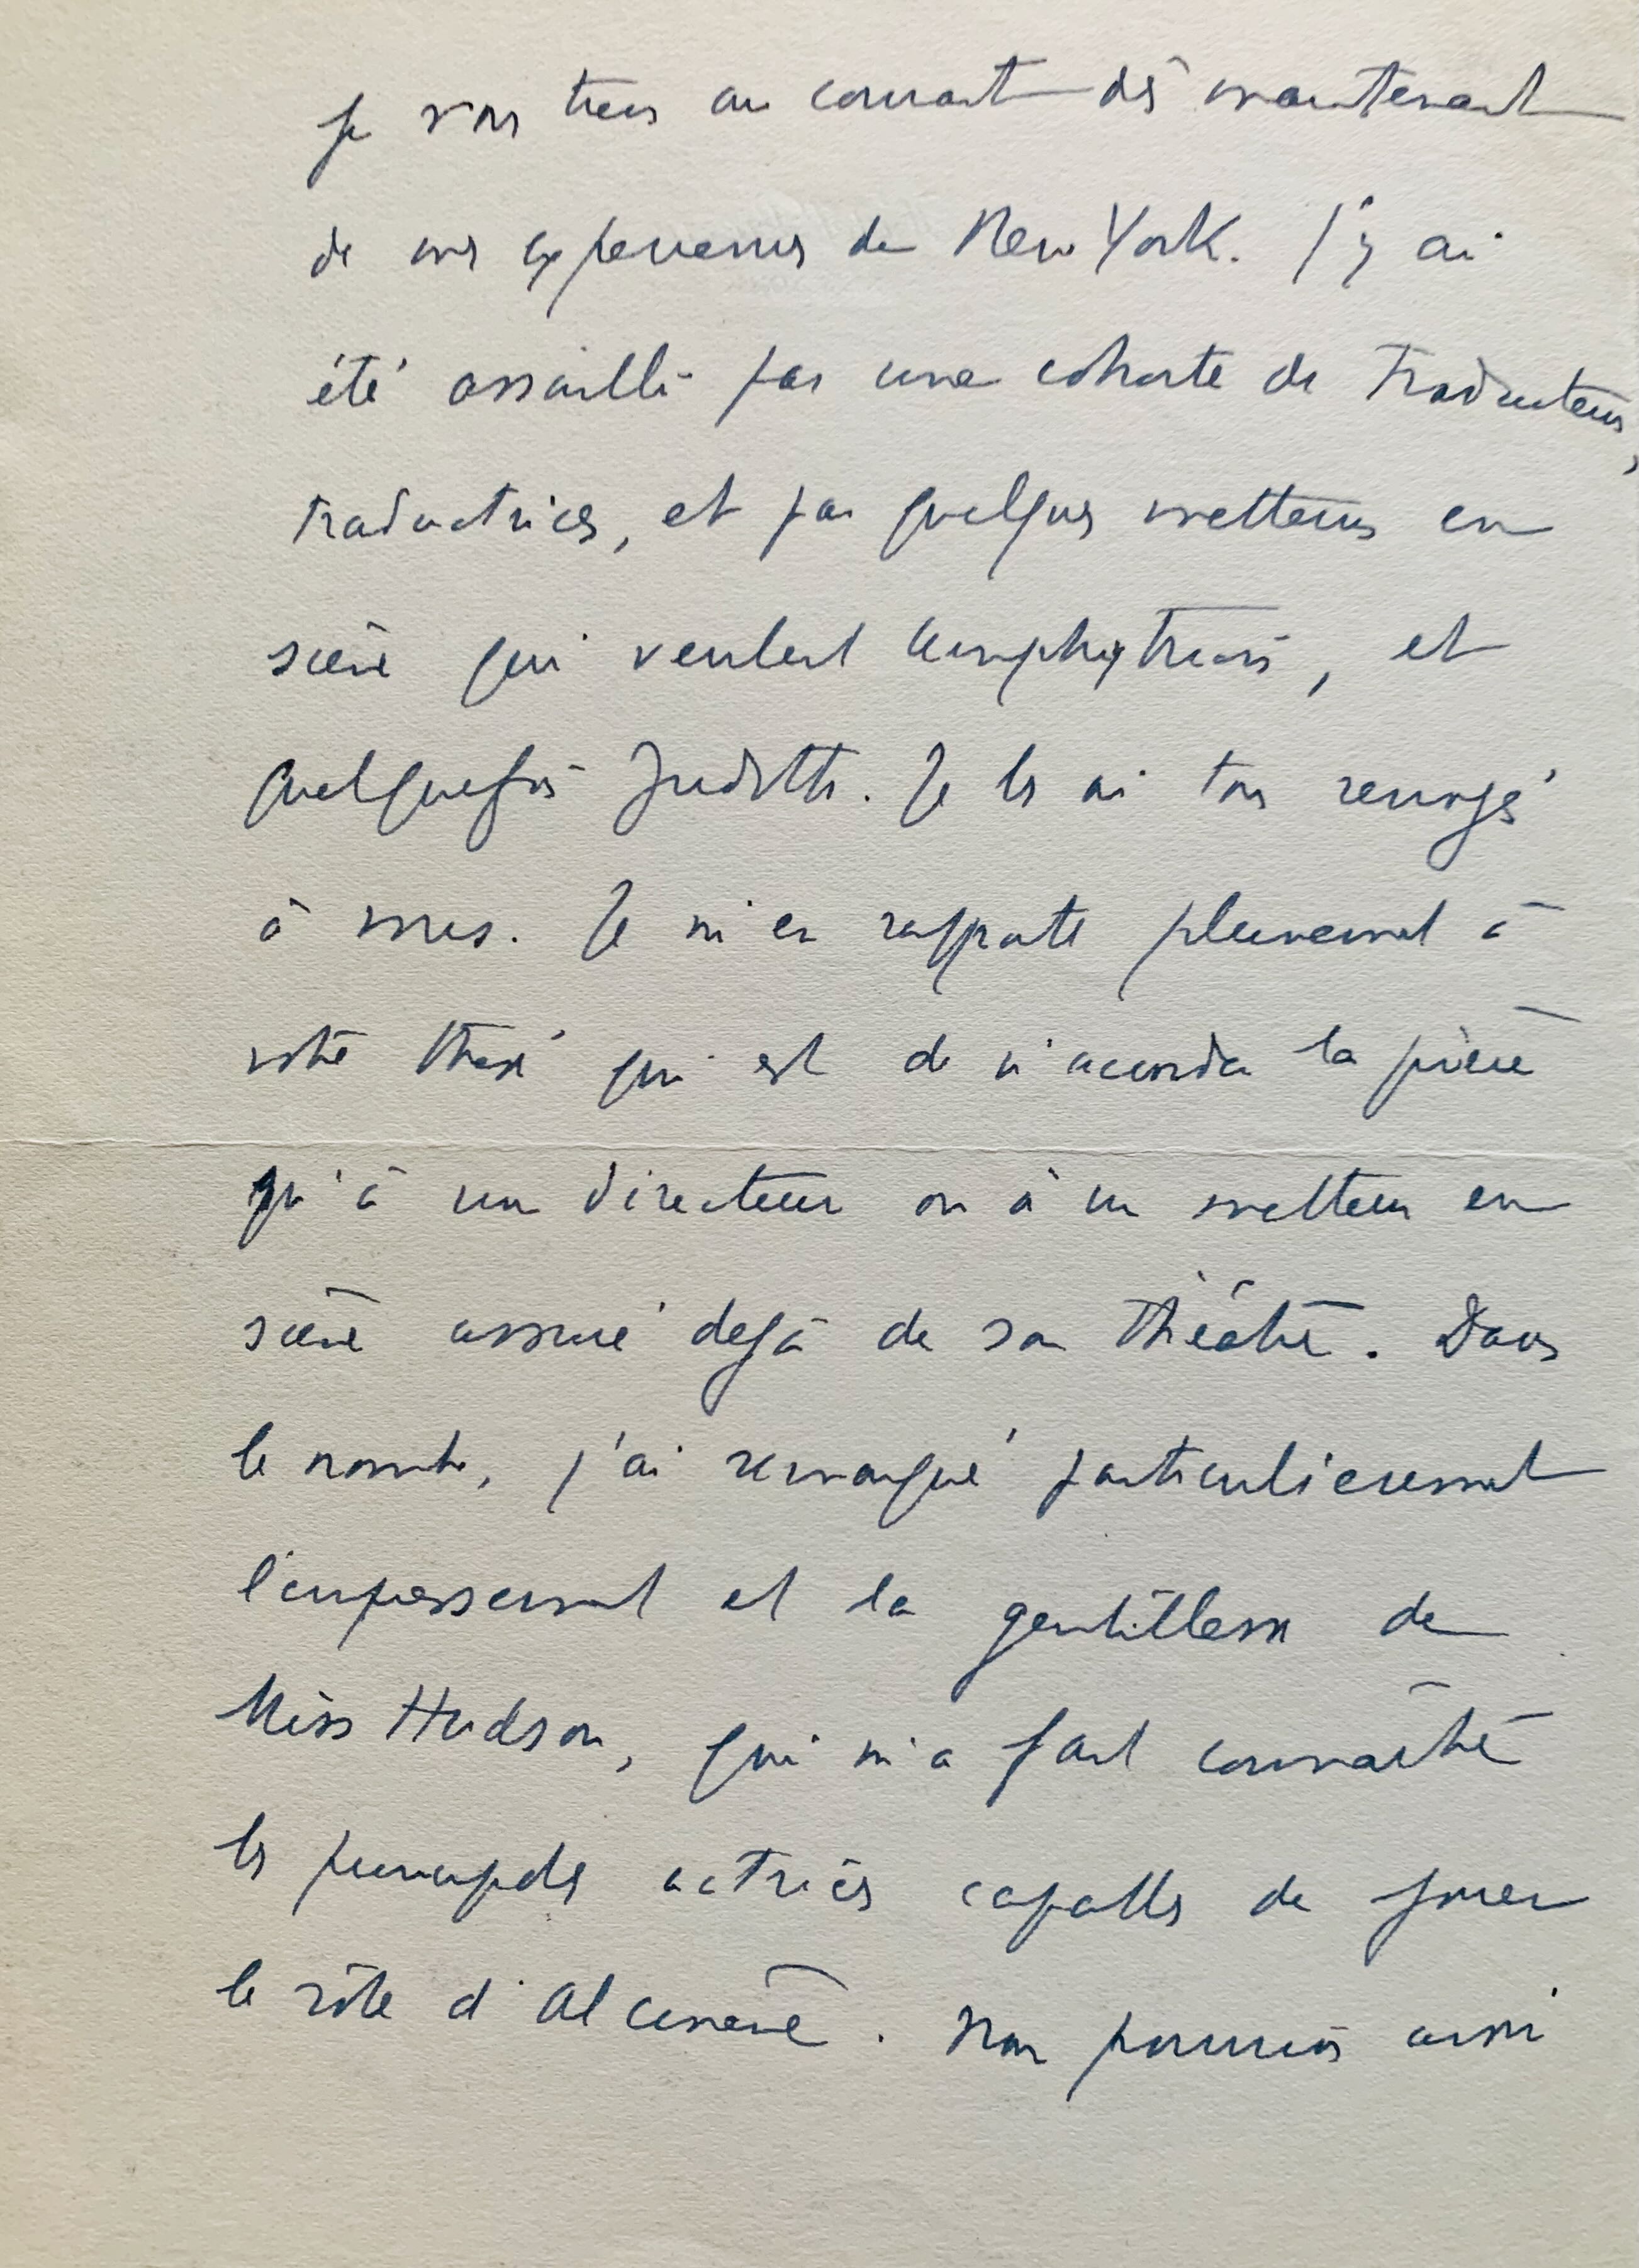 Je vous tiens au courant dès maintenant
de mes experiences de New York. J'y ai
été assailli par une cohorte de traducteurs,
traductrices, et par quelques metteurs en
scène qui veulent Amphytrion, et
quelquefois Judith. Je les ai tous renvoyés
à vous. Je m'en rapporte pleinement à
votre thèse qui est de n'accorder la pièce
qu'à un directeur ou à un metteur en
scène assuré dejà de son théâtre. Dans
le nombre, j'ai remarqué particulierement
l'empressement et la gentillesse de
Miss Hudson, qui m'a fait connaître
les principales actrices capables de jouer
le rôle d'Alcmène. Nous pourrions aussi